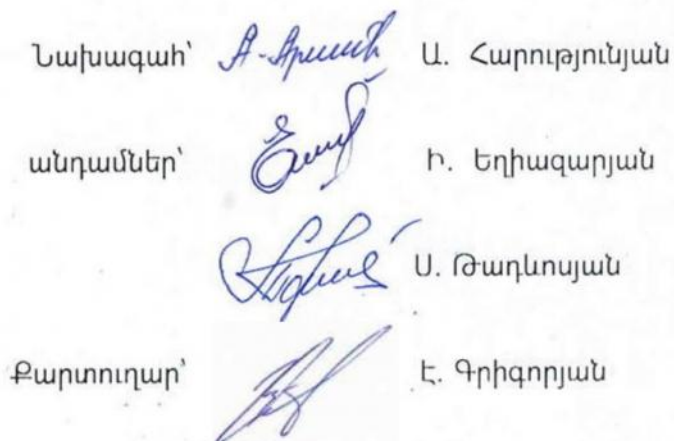 Նախագահ՝ Ա. Հարությունյան
անդամներ՝ Ի. Եղիազարյան
Ս. Թադևոսյան
Քարտուղար՝ Է. Գրիգորյան